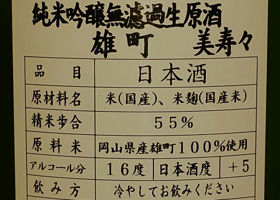 純米吟醸無濾過生原酒
雄町 美寿々
品目 日本酒
原材料名 米(国産)、米麹(国産米)
精米歩合 55%
原料米 岡山県産雄町100%使用
アルコール分 16度 日本酒度 +5
飲み方 冷やしてお飲みください